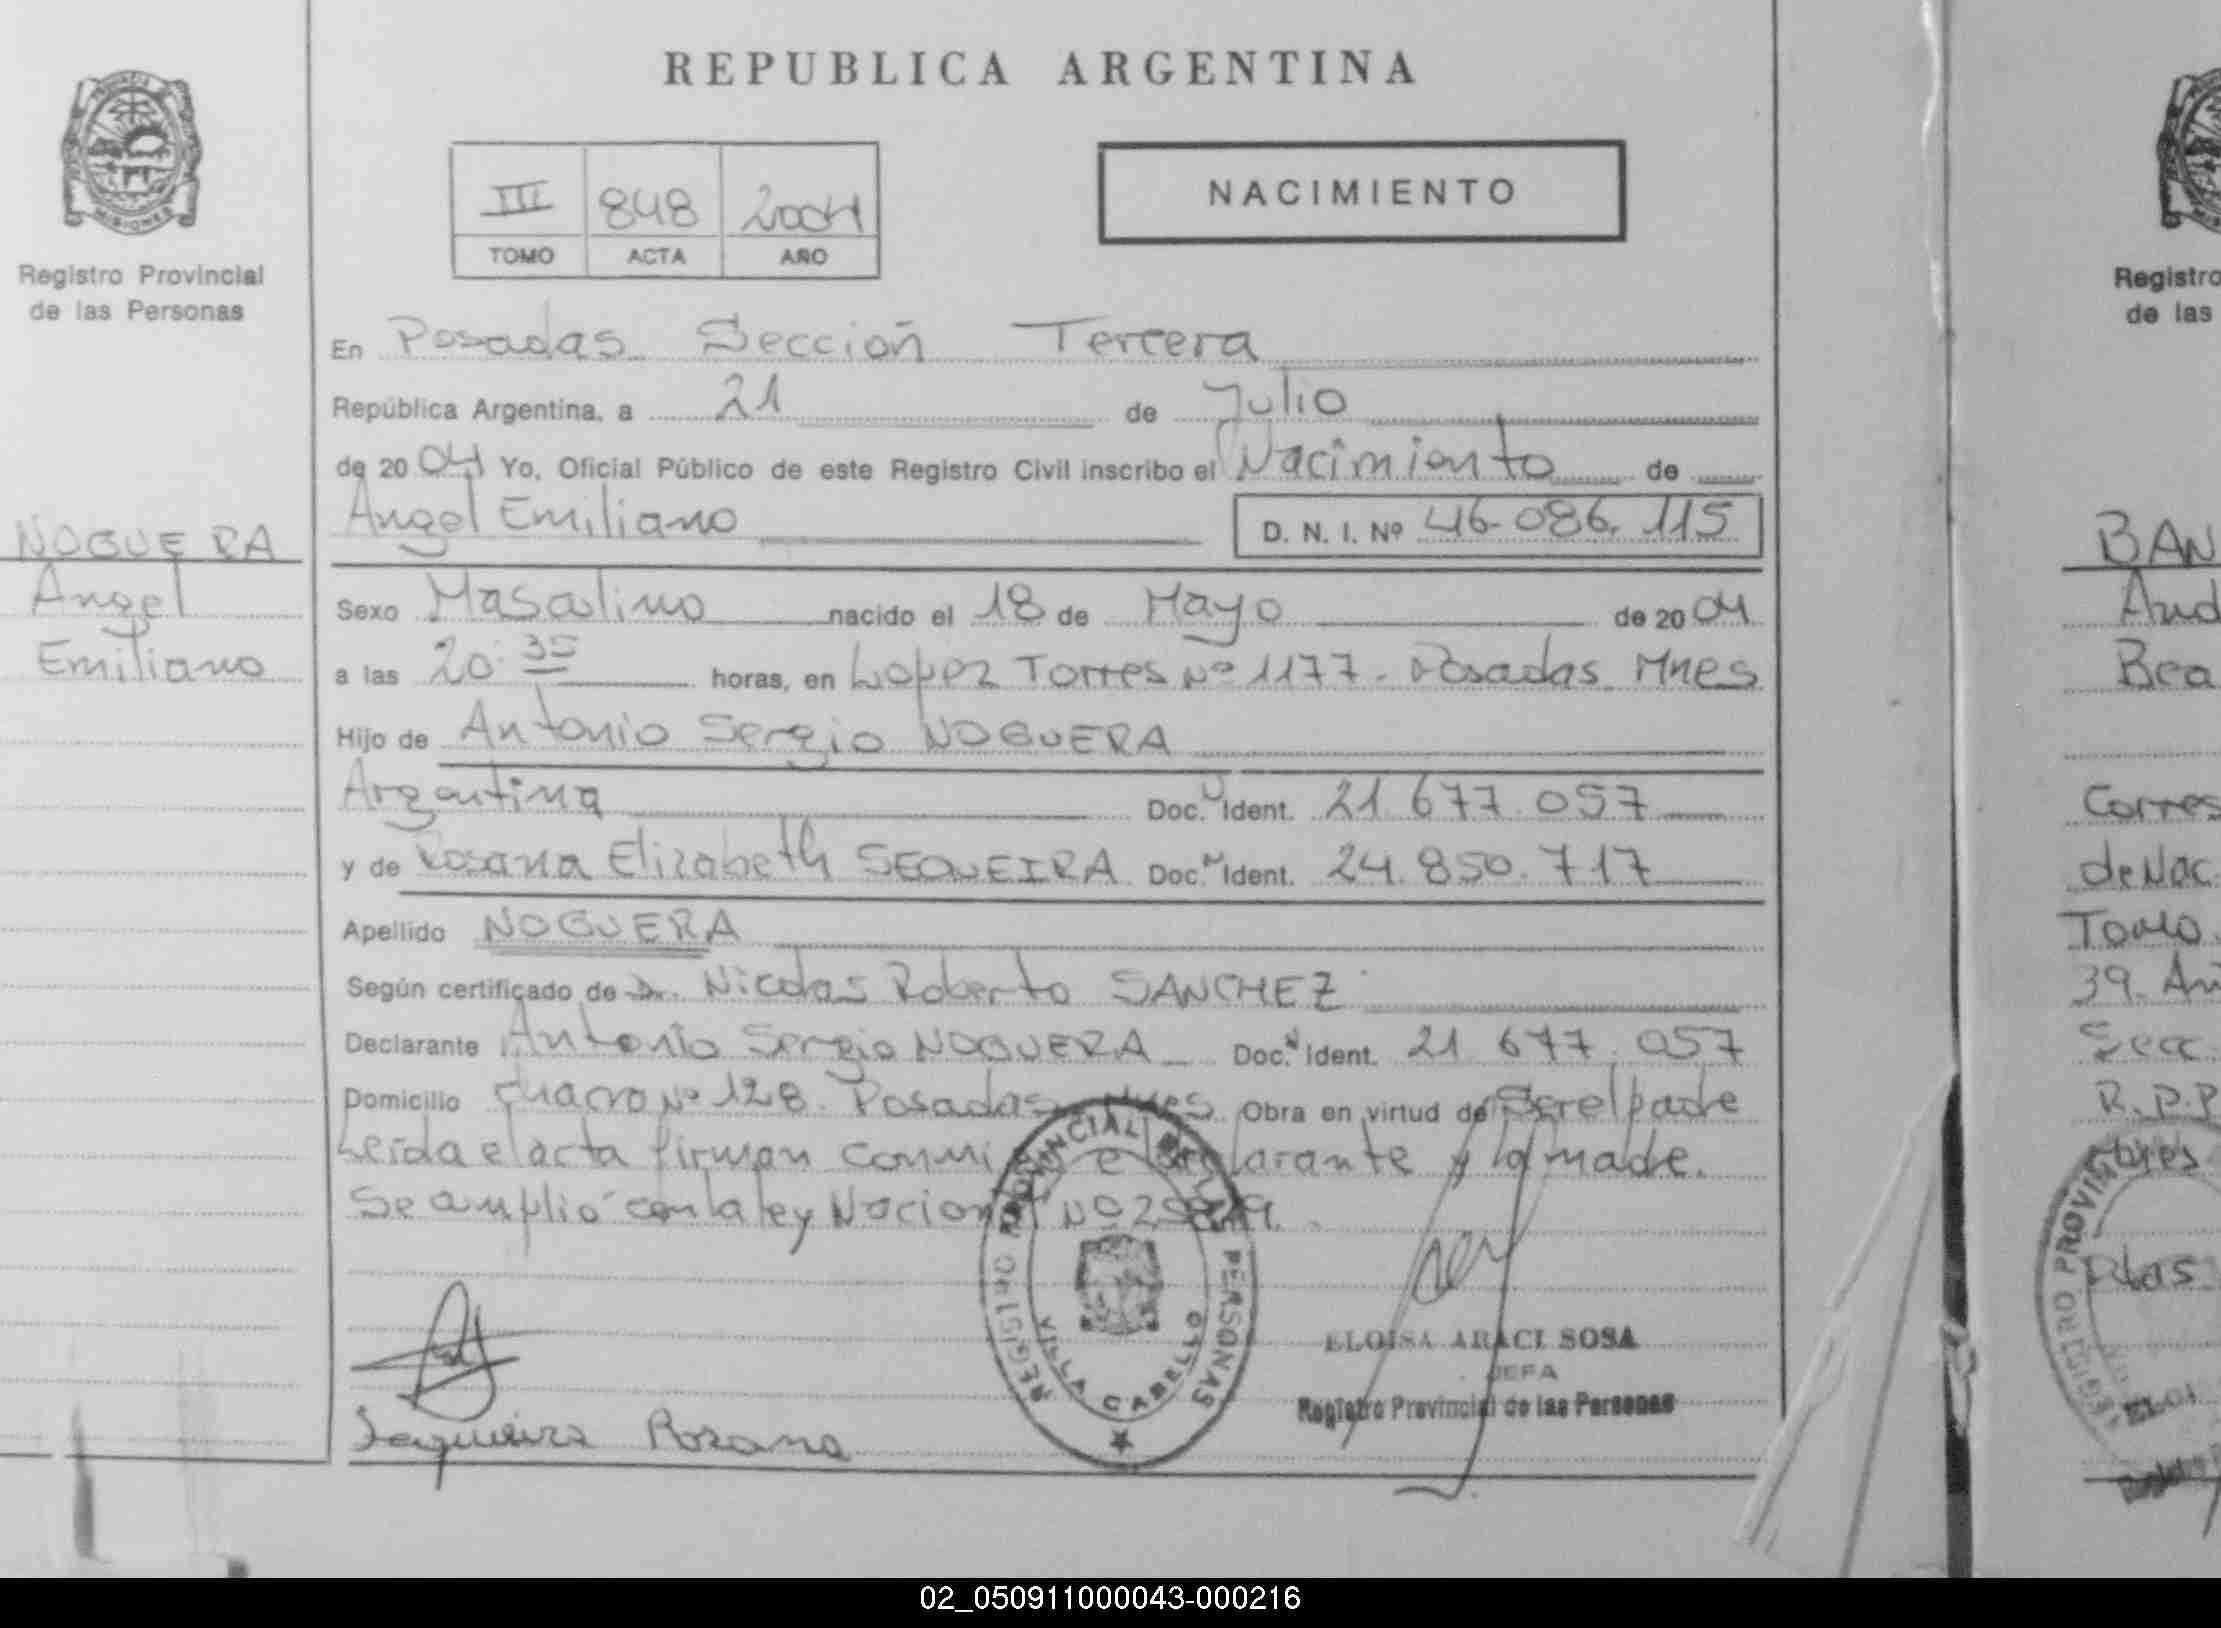 REPUBLICA ARGENTINA
PROVINCIA
MISIONES
Registro Provincial
de las Personas
III 848 2004
TOMO ACTA AÑO
NACIMIENTO
En Posadas Sección Tercera
República Argentina, a 21 de Julio
de 2004 Yo, Oficial Público de este Registro Civil inscribo el Nacimiento de
Angel Emiliano D. N. I. Nº 46.086.115
NOGUERA
Angel
Emiliano
Sexo Masculino nacido el 18 de Mayo de 2004
a las 20:35 horas, en Lopez Torres Nº 1177 - Posadas Mnes
Hijo de Antonio Sergio NOGUERA
Argentina Doc. Ident. 21.677.057
y de Rosana Elizabeth SEQUEIRA Doc. Ident. 24.850.717
Apellido NOGUERA
Según certificado de Dr. Nicolas Roberto SANCHEZ
Declarante Antonio Sergio NOGUERA Doc. Ident. 21.677.057
Domicilio Chacra Nº 128. Posadas Mnes Obra en virtud de Ser el padre
Leída el acta firman conmigo el declarante y la madre.
Se amplió con la ley Nacional Nº
REGISTRO PROVINCIAL DE LAS PERSONAS
VILLA CABELLO
ELOISA ARACI SOSA
JEFA
Registro Provincial de las Personas
Sequeira Rosana
Registro
de las
BAN
And
Bea
Corres
de Nac
Tomo
39. Añ
Secc.
R.P.P
REGISTRO PROVIN
02_050911000043-000216